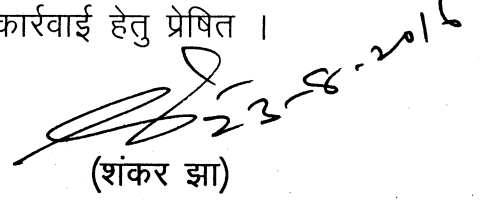 कार्रवाई हेतु प्रेषित ।
23-8-2016
(शंकर झा)